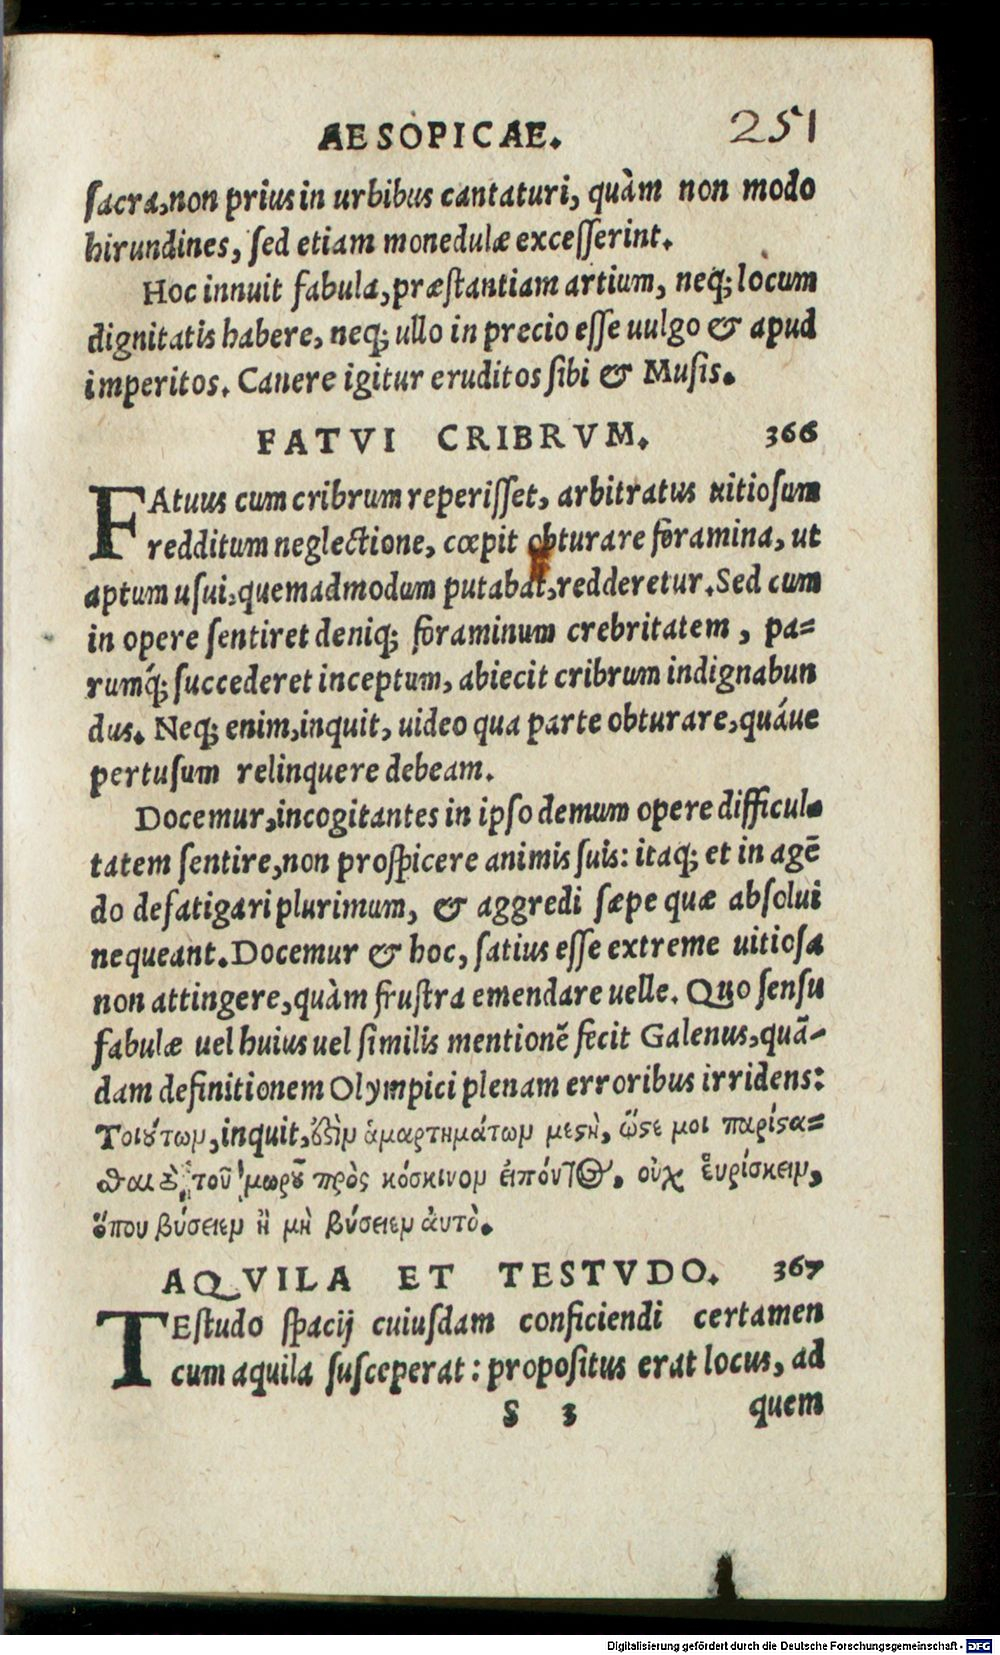 AESOPICAE. 251
sacra, non prius in urbibus cantaturi, quàm non modo
hirundines, sed etiam monedulæ excesserint.
Hoc innuit fabula, præstantiam artium, neq; locum
dignitatis habere, neq; ullo in precio esse uulgo & apud
imperitos. Canere igitur eruditos sibi & Musis.
FATVI CRIBRVM. 366
FAtuus cum cribrum reperisset, arbitratus uitiosum
redditum neglectione, cœpit obturare foramina, ut
aptum usui, quemadmodum putabat, redderetur. Sed cum
in opere sentiret deniq; foraminum crebritatem, pa=
rumq́; succederet inceptum, abiecit cribrum indignabun
dus. Neq; enim, inquit, uideo qua parte obturare, quáue
pertusum relinquere debeam.
Docemur, incogitantes in ipso demum opere difficul-
tatem sentire, non prospicere animis suis: itaq; et in agẽ
do defatigari plurimum, & aggredi sæpe quæ absolui
nequeant. Docemur & hoc, satius esse extreme uitiosa
non attingere, quàm frustra emendare uelle. Quo sensu
fabulæ uel huius uel similis mentionẽ fecit Galenus, quã-
dam definitionem Olympici plenam erroribus irridens:
Τοιούτωμ, inquit, ὅζιμ ἁμαρτημάτωμ μεςὴ, ὥςε μοι παρίςα=
θαι τὸ τοῦ μωροῦ πρὸς κόσκινομ ἐιπόντος, οὐχ ἑυρίσκειμ,
ὅπου βύσειεμ ἢ μὴ βύσειεμ ἀυτὸ.
AQVILA ET TESTVDO. 367
TEstudo spacij cuiusdam conficiendi certamen
cum aquila susceperat: propositus erat locus, ad
S 3 quem
Digitalisierung gefördert durch die Deutsche Forschungsgemeinschaft - DFG